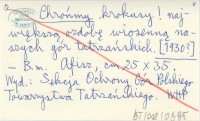 Chrońmy krokusy! naj-
większą ozdobę wiosenną na-
szych gór tatrzańskich. [1930?]
– B.m. Afisz, cm 25 x 35.
Wyd.: Sekcja Ochrony Gór Polskiego
Towarzystwa Tatrzańskiego.